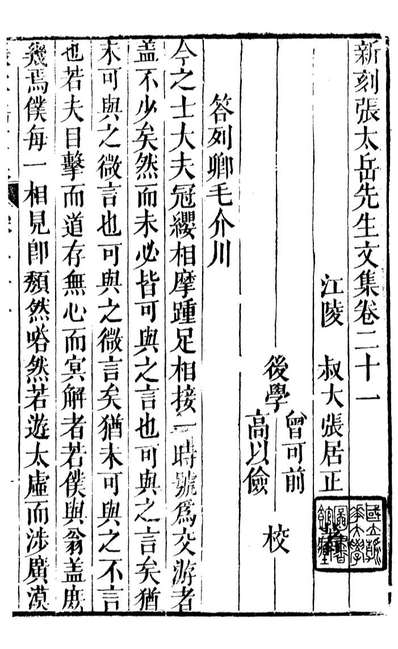 新刻張太岳先生文集卷二十一
江陵 叔大張居正
後學 曾可前
高以儉 校
答列卿毛介川
今之士大夫冠纓相摩踵足相接一時號為交游者
盖不少矣然而未必皆可與之言也可與之言矣猶
未可與之微言也可與之微言矣猶未可與之不言
也若夫目擊而道存無心而冥解者若僕與翁盖庶
幾焉僕每一相見卽頹然嗒然若遊太虛而涉廣漠